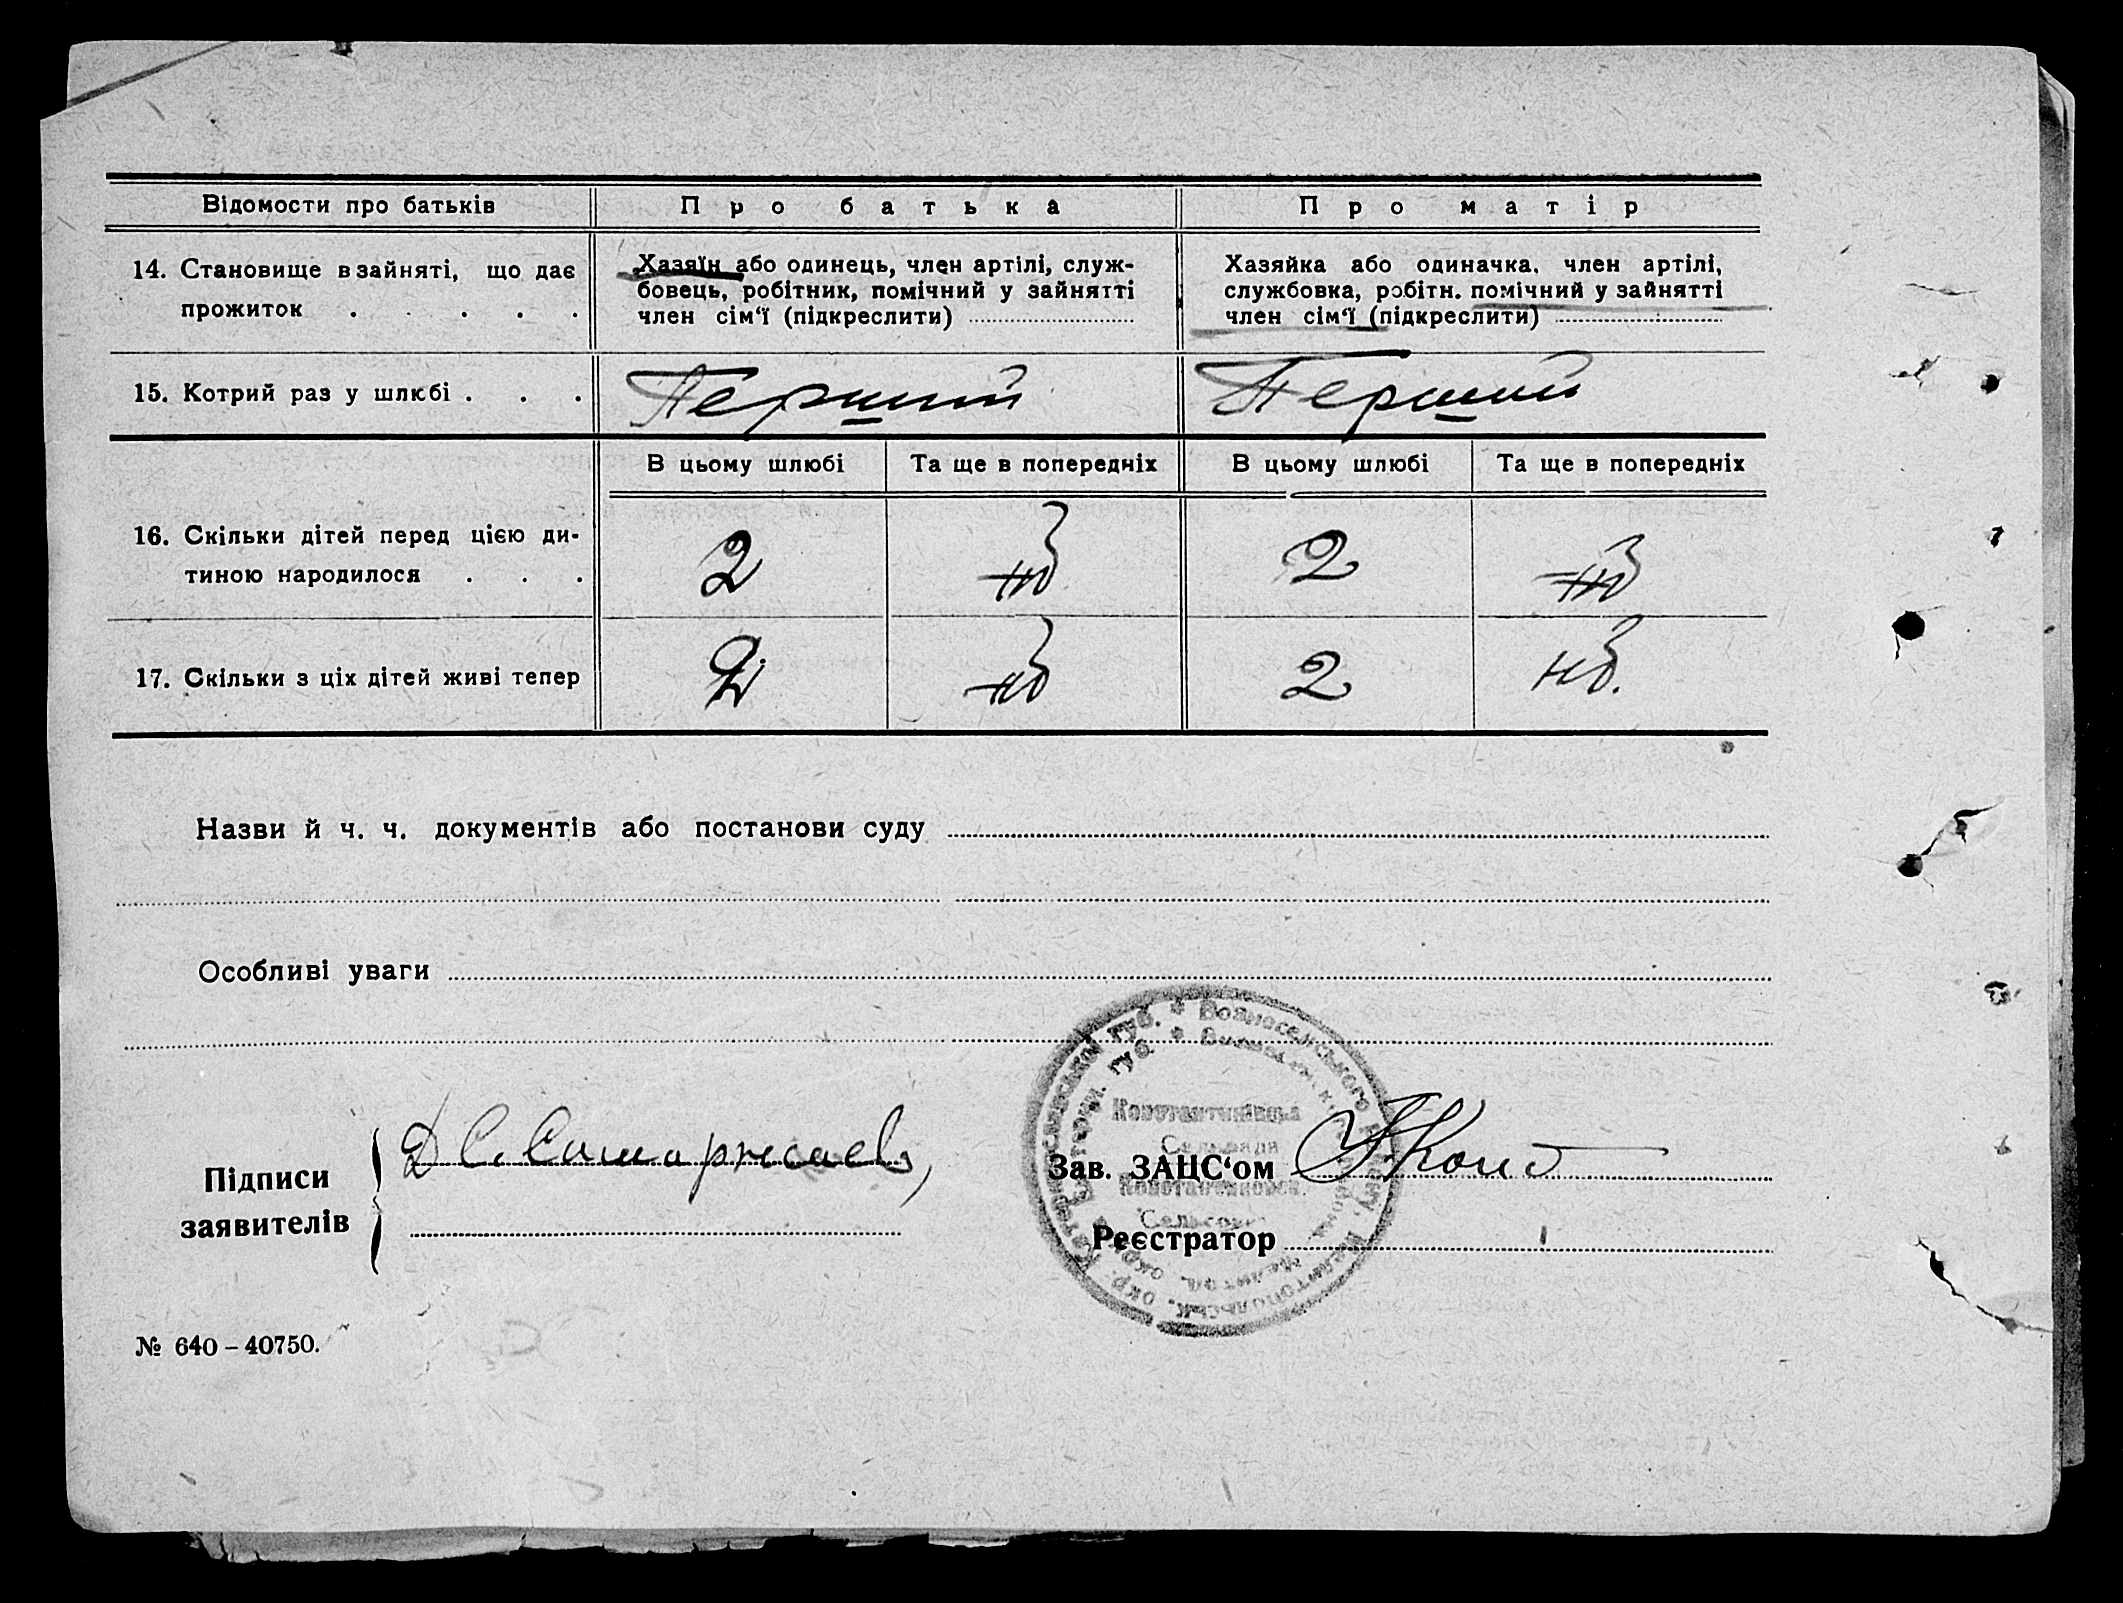 Відомости про батьків
Про батька
Про матір
14. Становище в зайняті, що дає
прожиток . . . . .
Хазяїн або одинець, член артілі, служ-
бовець, робітник, помічний у зайнятті
член сім'ї (підкреслити)
Хазяйка або одиначка, член артілі,
службовка, робітн. помічний у зайнятті
член сім'ї (підкреслити)
15. Котрий раз у шлюбі . . .
Перший
Перший
В цьому шлюбі
Та ще в попередніх
В цьому шлюбі
Та ще в попередніх
16. Скільки дітей перед цією ди-
тиною народилося . . .
2
2
17. Скільки з ціх дітей живі тепер
2
2
Назви й ч. ч. документів або постанови суду
Особливі уваги
Підписи
заявителів
Зав. ЗАЦС'ом
Реєстратор
Константинівська
Сельрада
№ 640 – 40750.